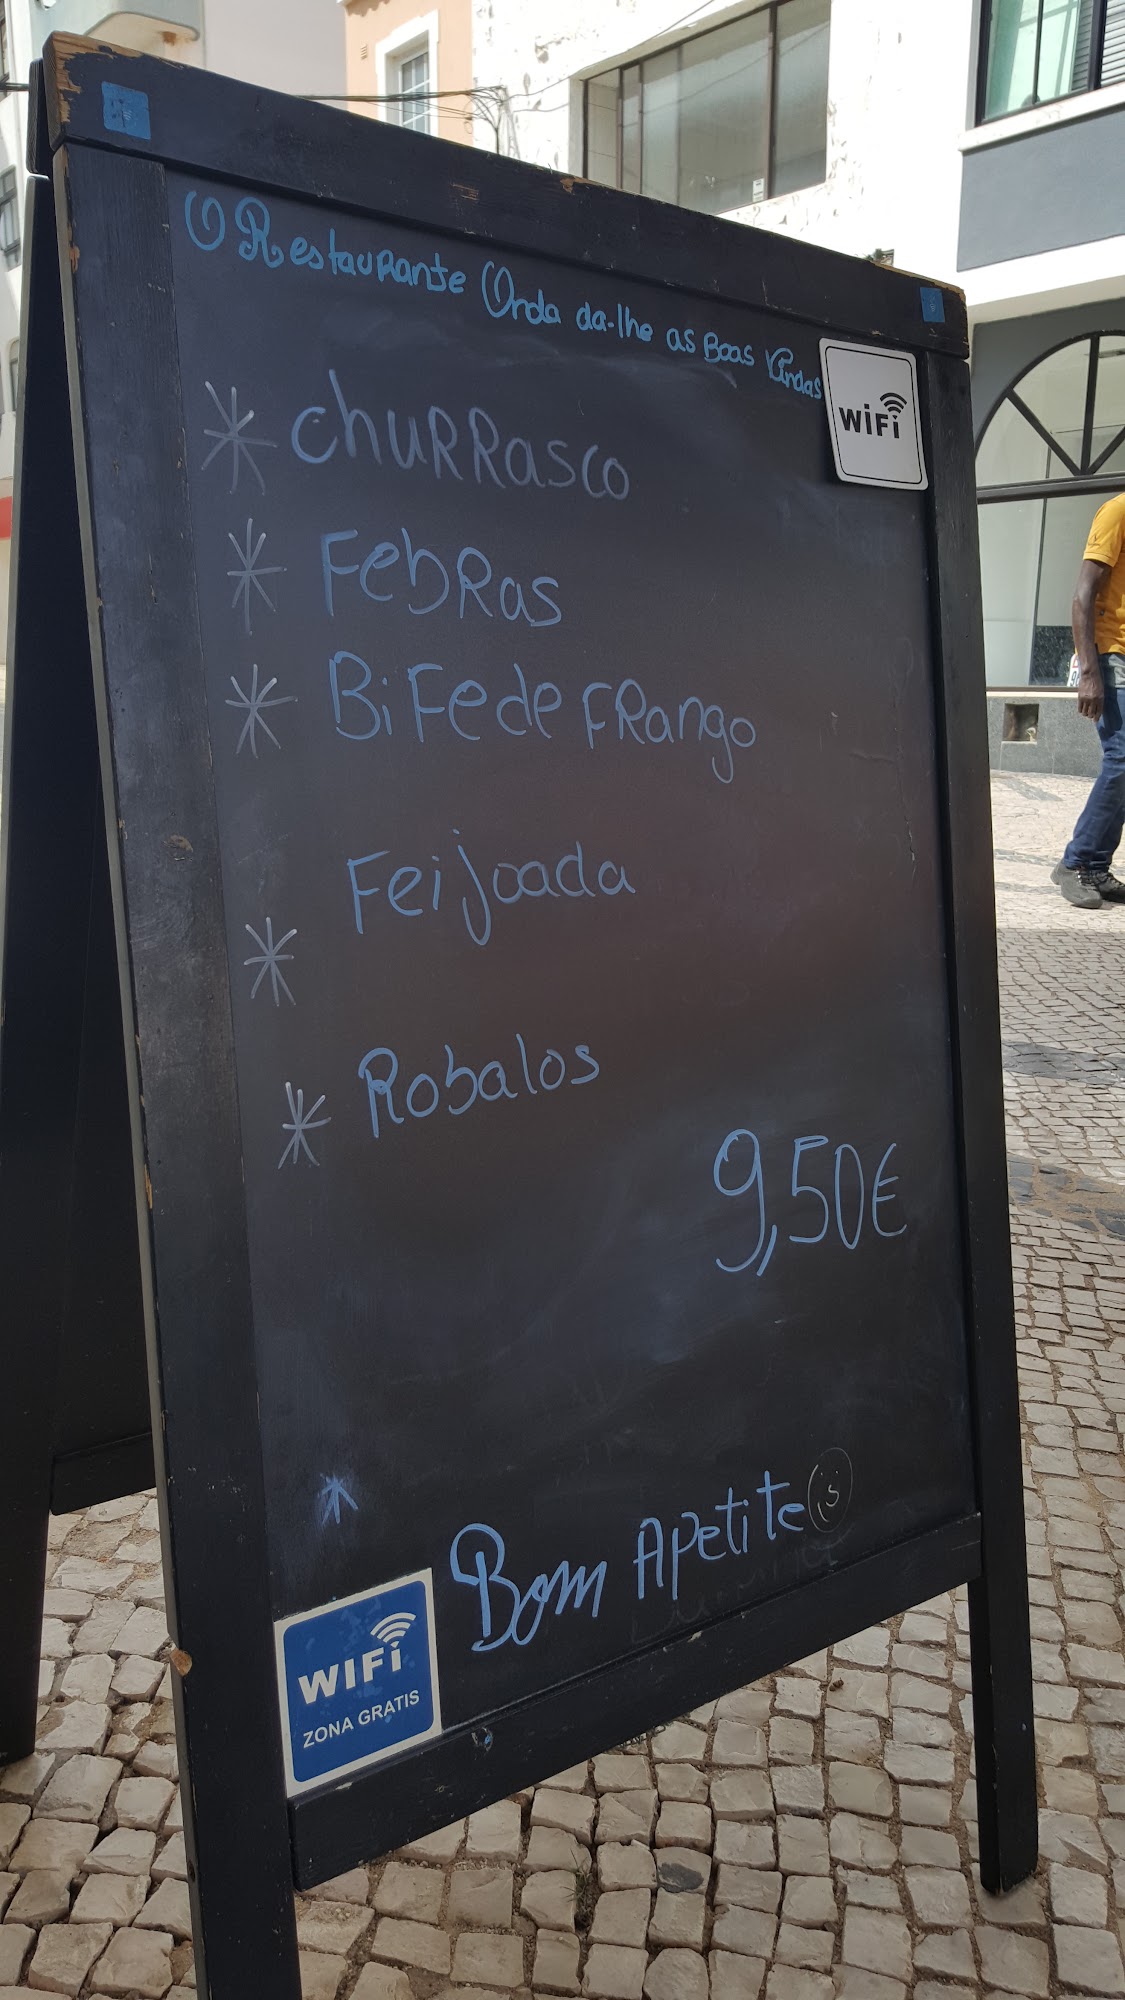 O Restaurante Onda da-lhe as Boas Vindas
WiFi
* churrasco
* Febras
* Bife de Frango
Feijoada
*
* Robalos
9,50€
Bom Apetite
WIFi
ZONA GRATIS